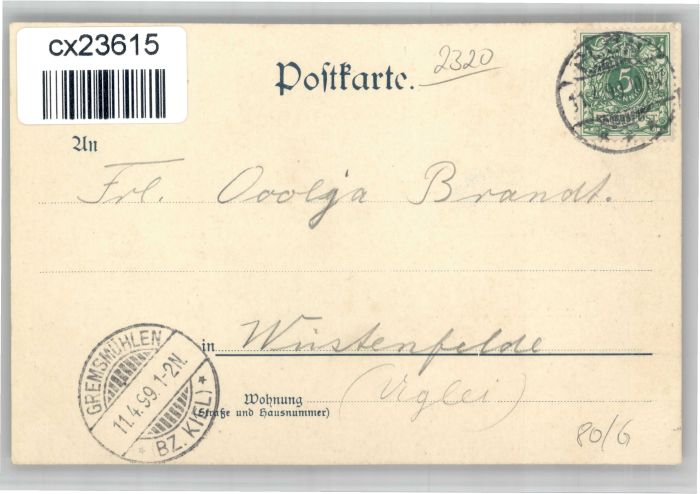 cx23615
Postkarte.
2320
5
An
Frl. Ovolja Brandt.
in Wüstenfelde
Wohnung (Uglei)
(Straße und Hausnummer)
GREMSMÜHLEN
11.4.99.1-2N.
* BZ. KIEL) *
80/G